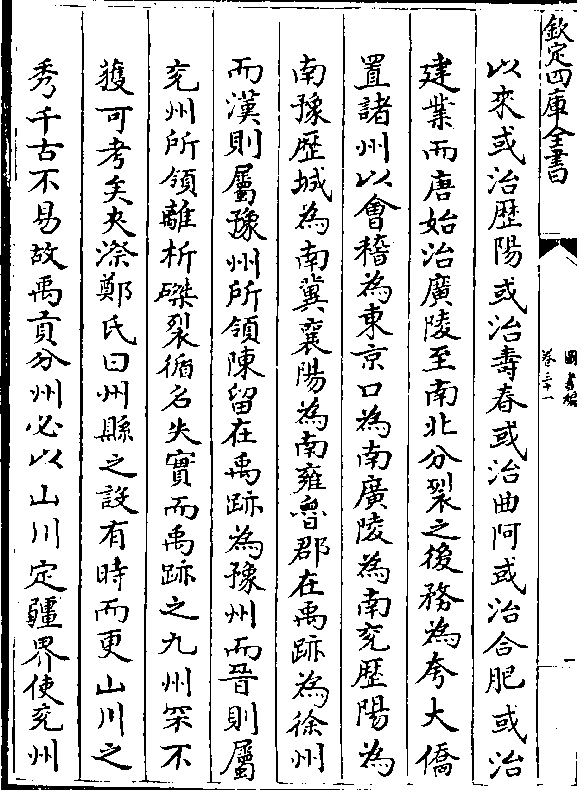 欽定四庫全書
圖書編
卷三十一
以來或治歴陽或治壽春或治曲阿或治合肥或治
建業而唐始治廣陵至南北分裂之後務為夸大僑
置諸州以會稽為東京口為南廣陵為南兖歴陽為
南豫歴城為南冀襄陽為南雍魯郡在禹跡為徐州
而漢則屬豫州所領陳留在禹跡為豫州而晉則屬
兖州所領離析磔裂循名失實而禹跡之九州罙不
獲可考矣夾漈鄭氏曰州縣之設有時而更山川之
秀千古不易故禹貢分州必以山川定疆界使兖州